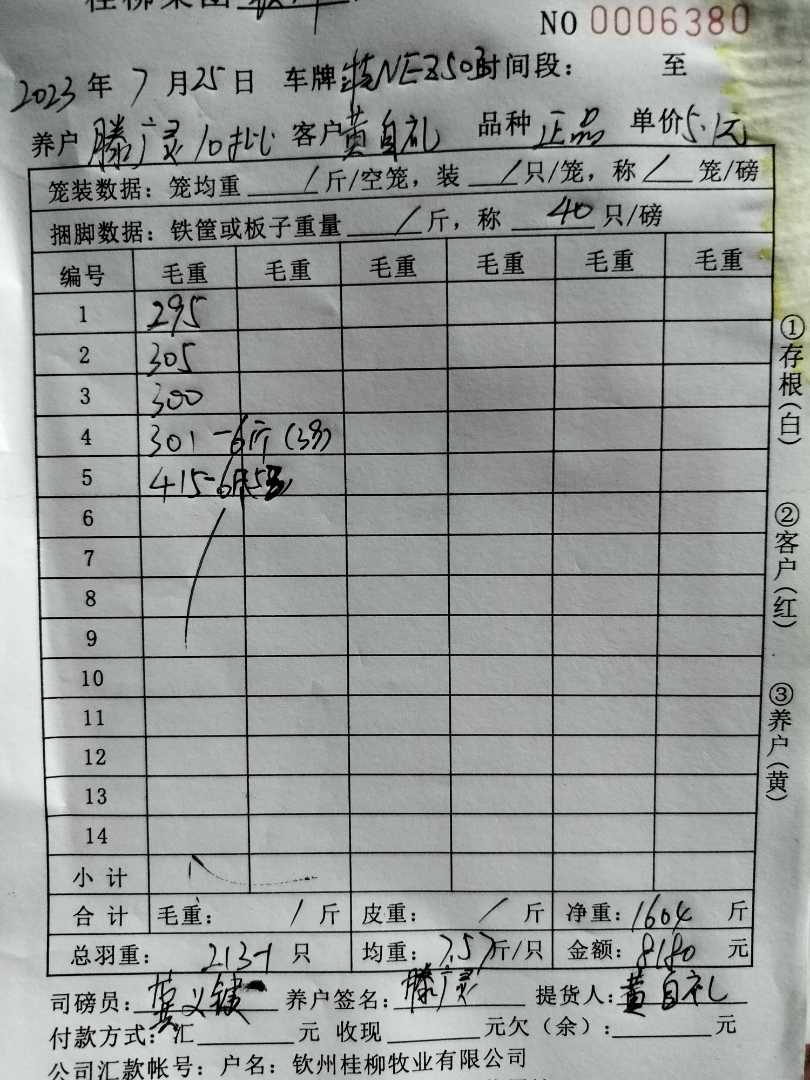 NO 0006380
2023年7月25日 车牌 时间段: 至
养户 滕广灵10批 客户 黄自礼 品种 正品 单价5.1元
笼装数据:笼均重 / 斤/空笼,装 / 只/笼,称 / 笼/磅
捆脚数据:铁筐或板子重量 / 斤,称 40 只/磅
编号 毛重 毛重 毛重 毛重 毛重 毛重
1 295
2 305
3 300
4 301-6斤(3只)
5 415-6
6
7
8
9
10
11
12
13
14
小计
合计 毛重: / 斤 皮重: / 斤 净重:1604 斤
总羽重: 213-1 只 均重:7.57斤/只 金额:8180 元
司磅员: 养户签名:滕广灵 提货人:黄自礼
付款方式:汇 元 收现 元欠(余): 元
公司汇款帐号:户名:钦州桂柳牧业有限公司
①存根(白)
②客户(红)
③养户(黄)